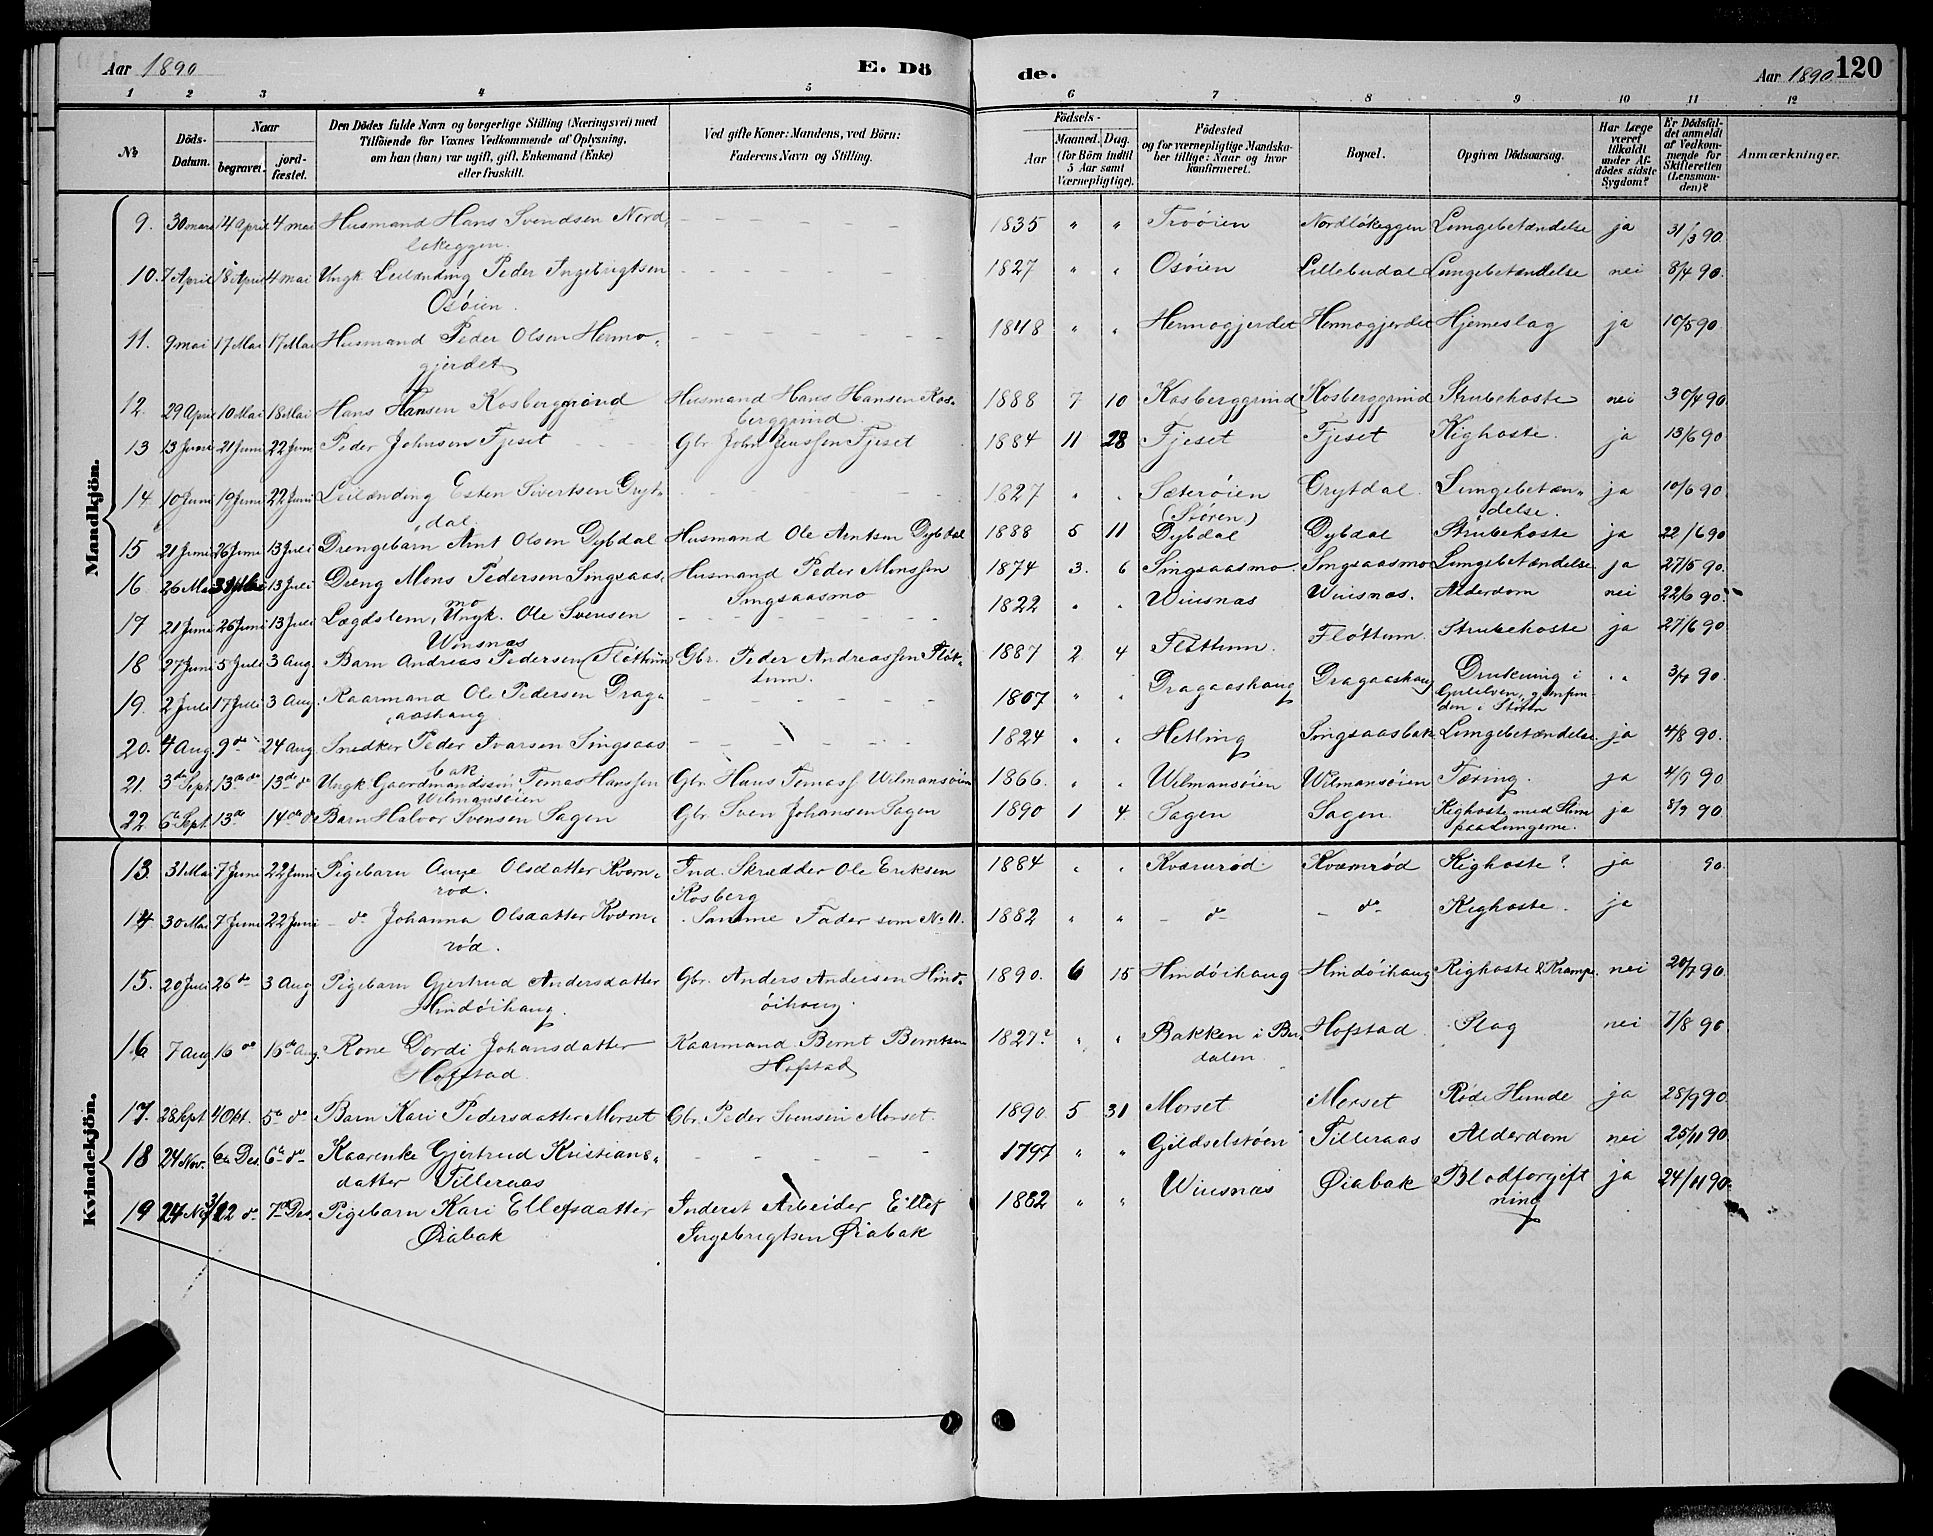 Aar 1890
E. Dö
de.
Aar 1890
120
1 2 3 4 5 6 7 8 9 10 11 12
№
Döds-
Datum.
Naar
begravet.
jord-
fæstet.
Den Dödes fulde Navn og borgerlige Stilling (Næringsvei) med
Tilföiende for Voxnes Vedkommende af Oplysning,
om han (hun) var ugift, gift, Enkemand (Enke)
eller fraskilt.
Ved gifte Koner: Mandens, ved Börn:
Faderens Navn og Stilling.
Födsels-
Aar
Maaned. Dag.
(for Börn indtil
5 Aar samt
Værnepligtige).
Födested
og for værnepligtige Mandska-
ber tillige: Naar og hvor
konfirmeret.
Bopæl.
Opgiven Dödsaarsag.
Har Læge
været
tilkaldt
under Af-
dödes sidste
Sygdom?
Er Dödsfal-
det anmeldt
af Vedkom-
mende for
Skifteretten
(Lensman-
den)?
Anmærkninger.
Mandkjön.
9. 30 mars 4 April 4 mai Husmand Hans Svendsen Nord- 1835 " " Trøøien Nordløkeggen Lungebetændelse ja 31/3 90.
løkeggen.
10. 7 April 18 April 4 mai Ungk. Leilænding Peder Ingebrigtsen 1827 " " Osøien Lillebudal Lungebetændelse nei 8/4 90.
Osøien.
11. 9 mai 17 Mai 17 Mai Husmand Peder Olsen Hermo- 1848 " " Hermogjerdet Hermogjerdet Hjerneslag ja 10/5 90.
gjerdet
12. 29 April 10 Mai 18 Mai Hans Hansen Kosberggrind Husmand Hans Hansen Kos- 1888 7 10 Kosberggrind Kosberggrind Strubehoste nei 30/4 90
berggrind
13 13 Juni 21 Juni 22 Juni Peder Johnsen Fjeset Gbr. John Jenssen Fjeset 1884 11 28 Fjeset Fjeset Kighoste. ja 13/6 90
14 10 Juni 19 Juni 22 Juni Leilænding Esten Sivertsen Gryt- 1827 " " Sæterøien Grytdal. Lungebetæn- ja 10/6 90.
dal. (Støren) delse.
15 21 Juni 26 Juni 13 Juli Drengebarn Arnt Olsen Dybdal Husmand Ole Arntsen Dybdal 1888 5 11 Dybdal Dybdal Strubehoste ja 22/6 90
16 26 Mai 31 Mai 13 Juli Dreng Mons Pedersen Singsaas- Husmand Peder Monssen 1874 3. 6 Singsaasmo. Singsaasmo Lungebetændelse. ja 27/5 90.
mo Singsaasmo
17 21 Juni 26 Juni 13 Juli Lægdslem, Ungk. Ole Svensen 1822 " " Winsnæs Winsnæs. Alderdom nei 22/6 90.
Winsnæs
18 27 Juni 5 Juli 3 Aug. Barn Andreas Pedersen (Fløttum) Gbr. Peder Andreassen Fløt- 1887 2 4 Fløttum. Fløttum. Strubehoste ja 27/6 90
tum.
19. 2 Juli 17 Juli 3 Aug. Kaarmand Ole Pedersen Drag- 1807 " " Dragaashaug Dragaashaug Drukning i " 3/7 90.
aashaug Gulelven, gjenfun
den i Støren
20. 4 Aug 9 do 24 Aug Snedker Peder Ivarsen Singsaas 1824 " " Hetling Singsaasbak Lungebetændelse ja 4/8 90.
bak
21. 3de Sept 13de do 13de do Ungk Gaardmandssøn Tomas Hanssen Gbr. Hans Tomass. Wilmansøien 1866. " " Wilmansøien Wilmansøien Tæring. ja 4/9 90
Wilmansøien
22 6te Sept 13de 14de do Barn Halvor Svensen Sagen Gbr. Sven Johansen Sagen 1890 1 4 Sagen Sagen Kighoste med Slim ja 8/9 90
paa Lungerne.
Kvindekjön.
13. 31 Mai 7 Juni 22 Juni Pigebarn Olsdatter Kværn- Ind. Skrædder Ole Eriksen 1884 " " Kværnrød Kværnrød Kighoste? ja 90.
rød. Kosberg
14 30 Mai 7 Juni 22 Juni - do Johanna Olsdatter Kværn- Samme Fader som No 11. 1882 " " - do - - do - Kighoste. ja
rød.
15. 20 Juli 26 do 3 Aug Pigebarn Gjertrud Andersdatter Gbr. Anders Andersen Hind- 1890. 6 15 Hindøihaug Hindøihaug Kighoste & Krampe. nei 20/7 90.
Hindøihaug. øihaug.
16 7 Aug 16 do 16de Aug. Kone Dordi Johansdatter Kaarmand Bernt Berntsen 1827. " " Bakken i Bu- Hofstad. Slag nei 7/8 90
Hofstad. Hofstad dalen.
17. 28 Sept 4 Okt. 5te do Barn Kari Pedersdatter Morset Gbr. Peder Svensen Morset. 1890. 5 31 Morset Morset Røde Hunde ja 28/9 90.
18 24 Nov. 6te Des 6te do Kaarenke Gjertrud Kristians- 1797 " " Gildselstøen Tilleraas Alderdom nei 25/11 90.
datter Tilleraas
19 24 Nov 2 do 7de Des. Pigebarn Kari Ellefsdatter Inderst Arbeider Ellef 1882 " " Winsnæs Øiabak Blodforgift ja 24/11 90.
Øiabak Ingebrigtsen Øiabak ning